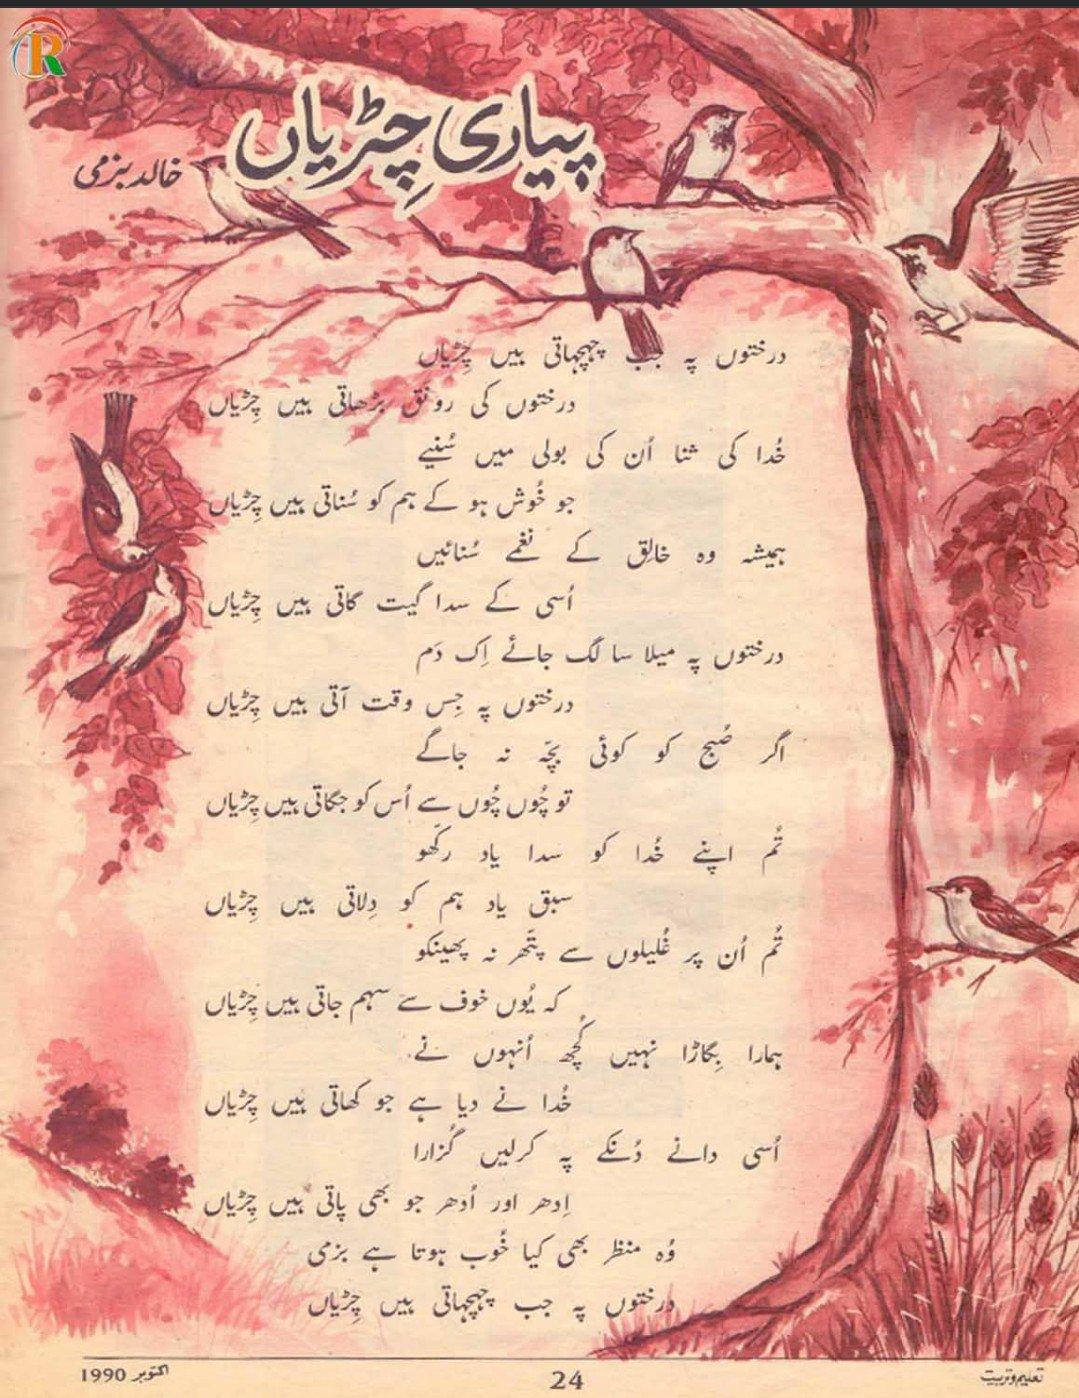 پیاری چِڑیاں
خالد بزمی
درختوں پہ جب چہچہاتی ہیں چِڑیاں
درختوں کی رونق بڑھاتی ہیں چِڑیاں
خُدا کی ثنا اُن کی بولی میں سُنیے
جو خُوش ہو کے ہم کو سُناتی ہیں چِڑیاں
ہمیشہ وہ خالِق کے نغمے سُنائیں
اُسی کے سدا گیت گاتی ہیں چِڑیاں
درختوں پہ میلا سا لگ جائے اِک دَم
درختوں پہ جِس وقت آتی ہیں چِڑیاں
اگر صُبح کو کوئی بچّہ نہ جاگے
تو چُوں چُوں سے اُس کو جگاتی ہیں چِڑیاں
تُم اپنے خُدا کو سدا یاد رکھّو
سبق یاد ہم کو دِلاتی ہیں چِڑیاں
تُم اُن پر غُلیلوں سے پتّھر نہ پھینکو
کہ یُوں خوف سے سہم جاتی ہیں چِڑیاں
ہمارا بِگاڑا نہیں کُچھ اُنہوں نے
خُدا نے دیا ہے جو کھاتی ہیں چِڑیاں
اُسی دانے دُنکے پہ کرلیں گُزارا
اِدھر اور اُدھر جو بھی پاتی ہیں چِڑیاں
وُہ منظر بھی کیا خُوب ہوتا ہے بزمی
درختوں پہ جب چہچہاتی ہیں چِڑیاں
تعلیم و تربیت
24
اکتوبر 1990
R